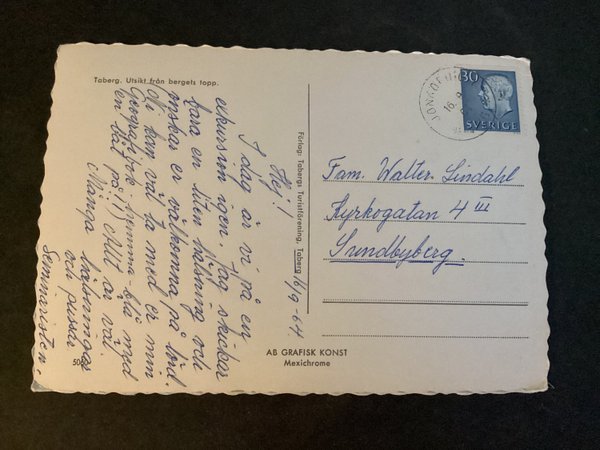 Taberg. Utsikt från bergets topp.
16/9-64
Hej!
I dag är vi på en
exkursion igen. Jag skickar
bara en liten hälsning och
önskar er välkomna på lörd.
Ni kan väl ta med er min
Geografibok hemma på
en låt på!) Allt är väl.
Många hälsningar
och pussar
Seminaristen.
Förlag: Tabergs Turistförening, Taberg
JÖNKÖPING
16.9
30
SVERIGE
Fam. Walter Lindahl
Kyrkogatan 4 III
Sundbyberg.
AB GRAFISK KONST
Mexichrome